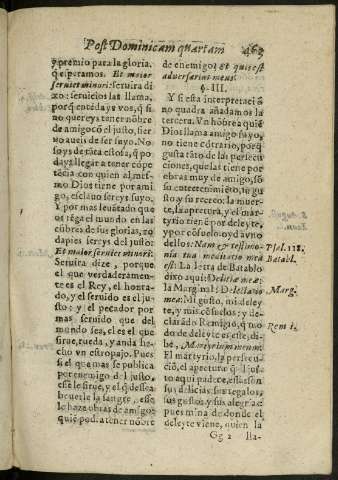 Post Dominicam quartam 463
y premio para la gloria,
q̃ esperamos. Et maior
seruiet minori: seruira di-
xo: seruicios las llama,
porq̃ entẽda ys vos, q̃ si
no quereys tener nõbre
de amigo cõ el justo, sier-
uo aueis de ser suyo. No
soys de tãta estofa, q̃ po-
days llegar a tener cõpe
tẽcia con quien al mes-
mo Dios tiene por ami
go, esclauo sereys suyo.
Y por mas leuãtado que
os tẽga el mundo en las
cũbres de sus glorias, ro
dapies sereys del justo:
Et maior seruiet minori:
Seruira dize, porque
el que verdaderamen-
te es el Rey, el honra-
do, y el seruido es el ju-
sto: y el pecador por
mas seruido que del
mundo sea, el es el que
sirue, rueda, y anda he-
cho vn estropajo. Pues
si el que mas se publica
por enemigo del justo,
esse le sirue, y el q̃ dessea
bruelle la sangre, esse
le haze obras de amigo:
quiẽ podra tener nõbre
de enemigo? Et quis est
aduersarius meus.
§. III.
Y si esta interpretaciõ
no quadra añadamos la
tercera. Vn hõbre a quiẽ
Dios llama amigo suyo,
no tiene cõtrario, porq̃
gusta tãto de las perfecu-
ciones, que las tiene por
obras muy de amigo, sõ
su entretenimiẽto, su gu
sto y su recreo: la muer-
te, la apretura, y el marty-
rio tiene por deleyte,
y por cõsuelo: oyd a vno
dellos: Nam & testimo-
nia tua meditatio mea
est: La letra de Batablo
dixo aqui: Deliciæ meæ:
la Marginal: Delectatio
mea: Mi gusto, mi deley-
te, y mis cõsuelos: y de-
clarado Remigio, q̃ mo-
do de deleyte es este, di-
ze, Martyrium meum:
El martyrio, la persecu-
ciõ, el apertura q̃ el justo
aqui padece, essas son
sus delicias, sus regalos,
sus gustos y sus alegrias:
pues mina de donde el
deleyte viene, quien la
Gg 2 lla-
Psal. 118.
Batabl.
Marg.
Remi.